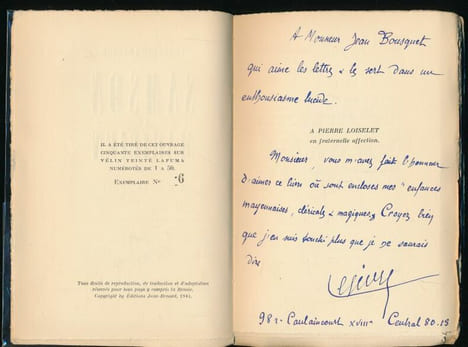 IL A ÉTÉ TIRÉ DE CET OUVRAGE
CINQUANTE EXEMPLAIRES SUR
VÉLIN TEINTÉ LAFUMA
NUMÉROTÉS DE 1 A 50.
EXEMPLAIRE No 26
Tous droits de reproduction, de traduction et d'adaptation
réservés pour tous pays y compris la Russie.
Copyright by Editions Jean-Renard, 1941.
A Monsieur Jean Bousquet
qui aime les lettres & les sert dans un
enthousiasme lucide.
A PIERRE LOISELET
en fraternelle affection.
Monsieur, vous m'avez fait l'honneur
d'aimer ce livre où sont encloses mes "enfances
mayennaises, cléricales & magiques". Croyez bien
que j'en suis touché plus que je ne saurais
dire
98 r. Caulaincourt XVIIIe Central 80.18